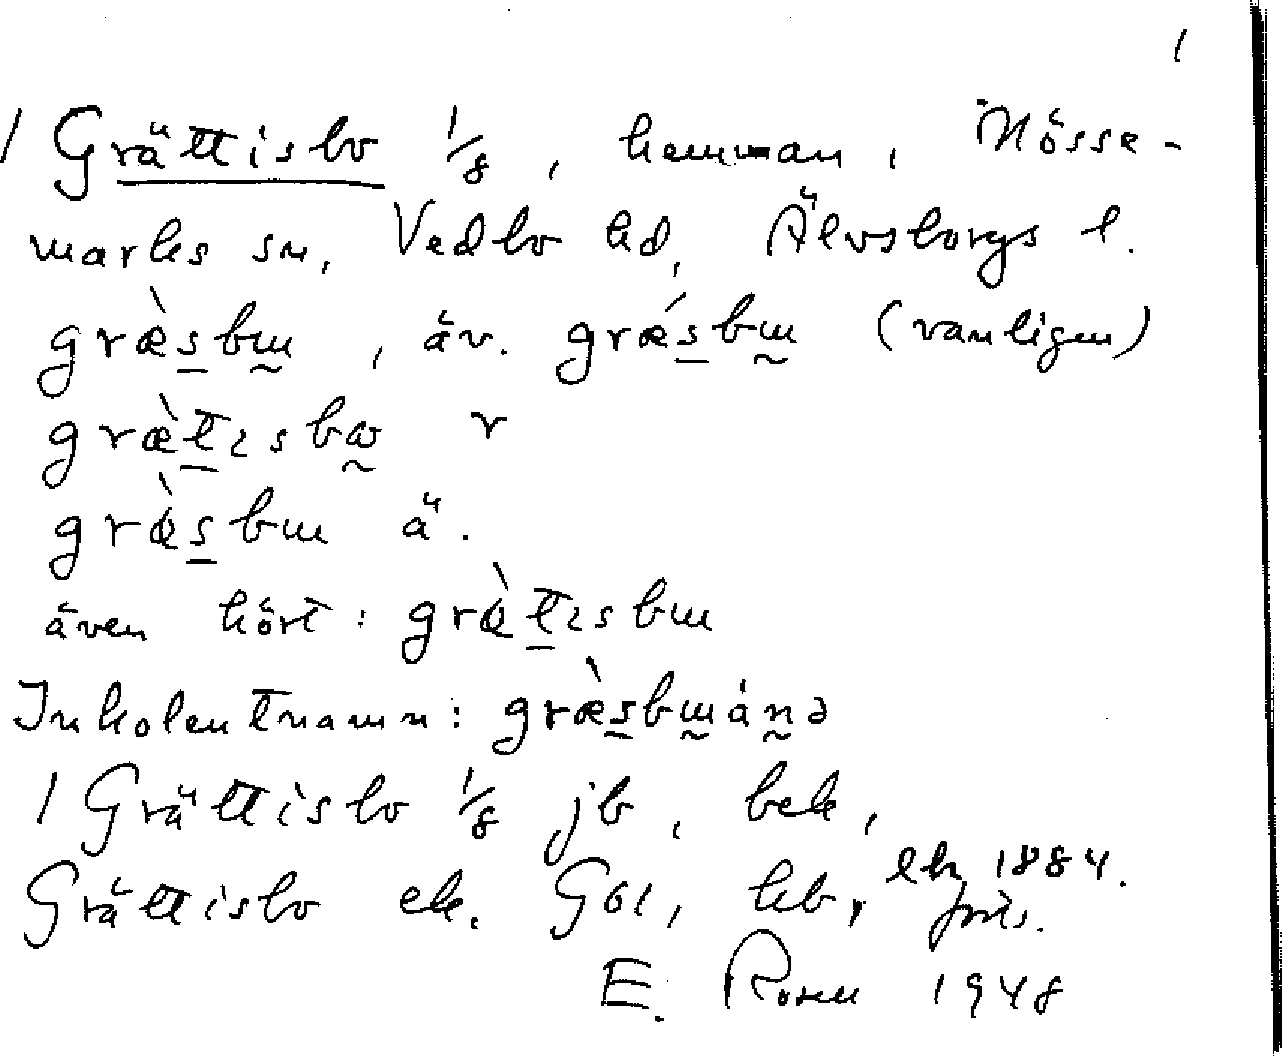 1
1 Grättisbo 1/8, hemman, Nösse-
marks sn, Vedbo hd, Älvsborgs l.
græ̀s̲bɯ̰, äv. grǽs̲bɯ̰ (vanligen)
græ̀t̲ɩsbω̰ r
græ̀s̲bɯ ä.
även hört: græ̀t̲ɩsbɯ
Inkolentnamn: græ̀s̲bɯ̰án̰ə
1 Grättisbo 1/8 jb, bek,
Grättisbo ek. GSL, kb, ek 1884. fmis.
E. Rosell 1948